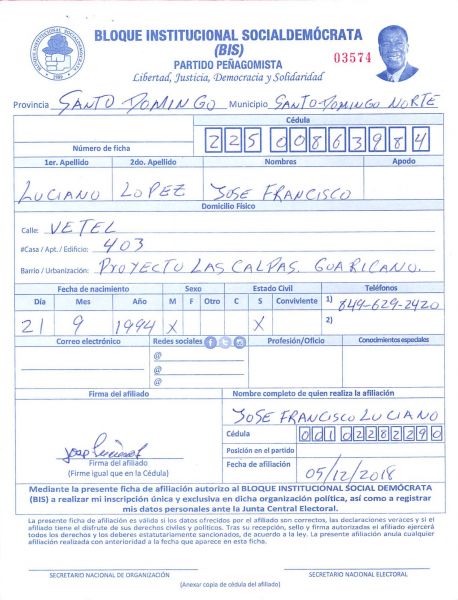 BLOQUE INSTITUCIONAL SOCIALDEMÓCRATA
(BIS)
03574
PARTIDO PEÑAGOMISTA
Libertad, Justicia, Democracia y Solidaridad
Provincia SANTO DOMINGO Municipio SANTO DOMINGO NORTE
Cédula
Número de ficha 225 0086398 4
1er. Apellido 2do. Apellido Nombres Apodo
LUCIANO LOPEZ JOSE FRANCISCO
Domicilio Físico
Calle: VETEL
#Casa / Apt. / Edificio: 403
Barrio / Urbanización: PROYECTO LAS CALPAS, GUARICANO.
Fecha de nacimiento Sexo Estado Civil Teléfonos
Día Mes Año M F Otro C S Conviviente 1) 849-629-2420
21 9 1994 X X 2)
Correo electrónico Redes sociales Profesión/Oficio Conocimientos especiales
@
@
@
Firma del afiliado Nombre completo de quien realiza la afiliación
JOSE FRANCISCO LUCIANO
Cédula
00102282290
Posición en el partido
Firma del afiliado
(Firme igual que en la Cédula)
Fecha de afiliación 05/12/2018
Mediante la presente ficha de afiliación autorizo al BLOQUE INSTITUCIONAL SOCIAL DEMÓCRATA
(BIS) a realizar mi inscripción única y exclusiva en dicha organización política, así como a registrar
mis datos personales ante la Junta Central Electoral.
La presente ficha de afiliación es válida si los datos ofrecidos por el afiliado son correctos, las declaraciones veraces y si el
afiliado tiene el disfrute de sus derechos civiles y políticos. Tras su recepción, sello y firma autorizadas el afiliado ejercerá
todos los derechos y los deberes estatutariamente sancionados, de acuerdo a la ley. La presente afiliación anula cualquier
afiliación realizada con anterioridad a la fecha que aparece en esta ficha.
SECRETARIO NACIONAL DE ORGANIZACIÓN SECRETARIO NACIONAL ELECTORAL
(Anexar copia de cédula del afiliado)